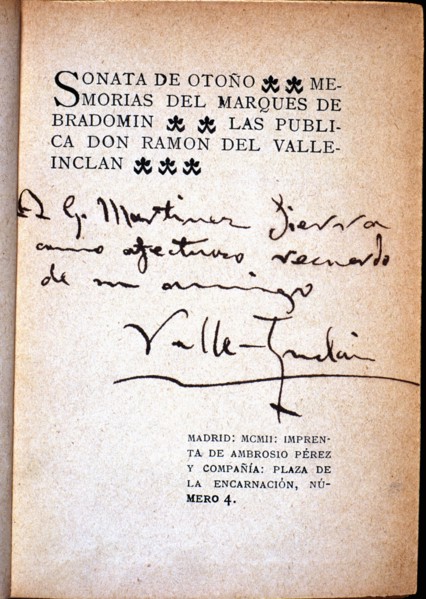 SONATA DE OTOÑO ME-
MORIAS DEL MARQUES DE
BRADOMIN LAS PUBLI-
CA DON RAMON DEL VALLE-
INCLAN
A G. Martinez Sierra
como afectuoso recuerdo
de un amigo
Valle-Inclán
MADRID: MCMII: IMPREN-
TA DE AMBROSIO PÉREZ
Y COMPAÑÍA: PLAZA DE
LA ENCARNACIÓN, NÚ-
MERO 4.